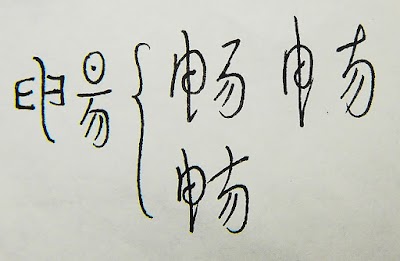 暢{畅 畅
畅